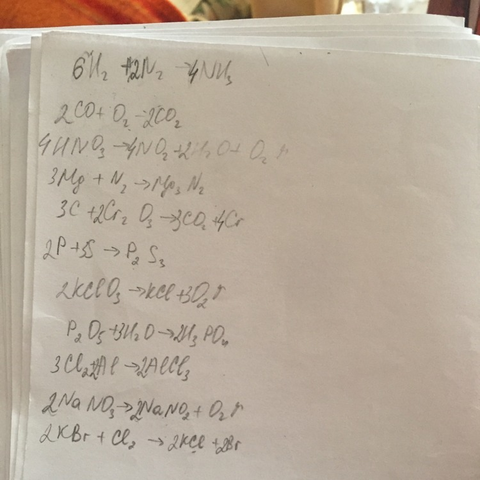 6H₂ + 2N₂ → 4NH₃
2CO + O₂ → 2CO₂
4HNO₃ → 4NO₂ + 2H₂O + O₂ ↑
3Mg + N₂ → Mg₃N₂
3C + 2Cr₂O₃ → 3CO₂ + 4Cr
2P + 3S → P₂S₃
2KClO₃ → KCl + 3O₂ ↑
P₂O₅ + 3H₂O → 2H₃PO₄
3Cl₂ + 2Al → 2AlCl₃
2NaNO₃ → 2NaNO₂ + O₂ ↑
2KBr + Cl₂ → 2KCl + 2Br